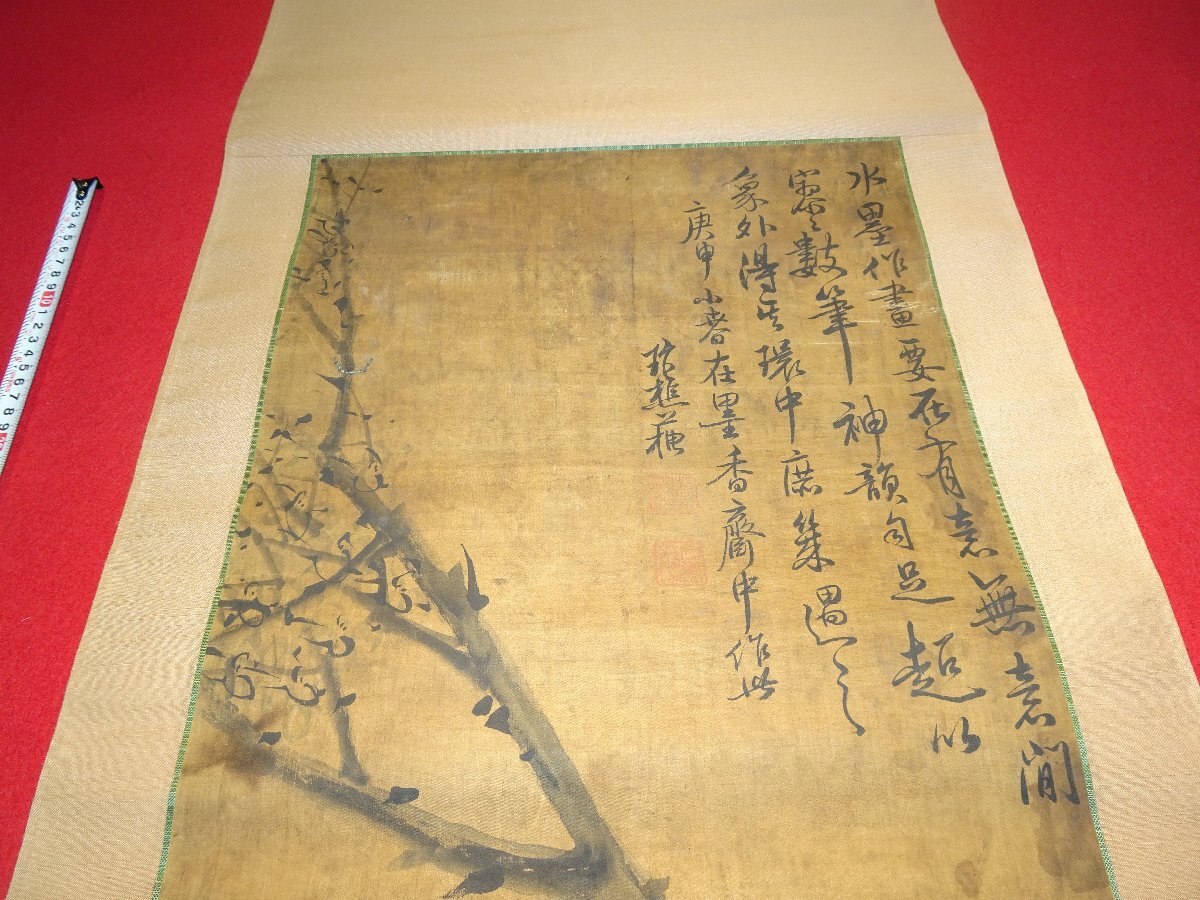 水墨作畫要在有意無意間
寥寥數筆神韻自足超以
象外得其環中庶幾遇之
庚申小春在墨香齋中作此
樵蘇
2 3 4 5 6 7 8 9 10 1 2 3 4 5 6 7 8 9